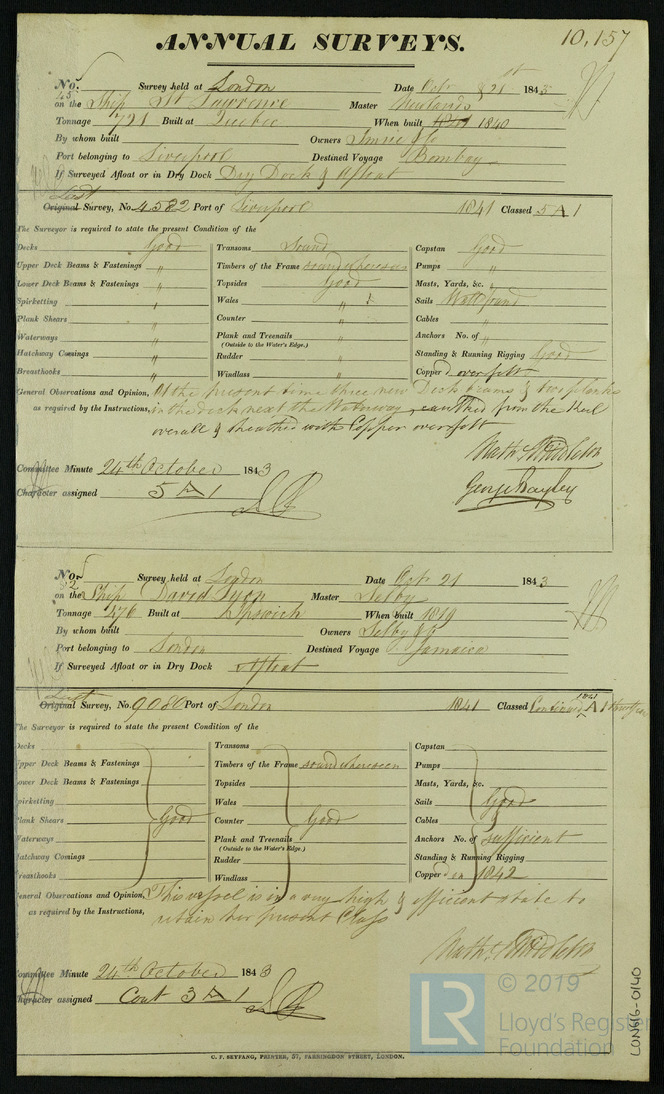 ANNUAL SURVEYS. 10,157
No. Survey held at London Date Octr 21st 1843
on the Ship St Lawrence Master Newlands
Tonnage 721 Built at Quebec When built 1840
By whom built Owners Imrie & Co
Port belonging to Liverpool Destined Voyage Bombay
If Surveyed Afloat or in Dry Dock Dry Dock & Afloat
Last
Original Survey, No. 4582 Port of Liverpool 1841 Classed 5 A 1
The Surveyor is required to state the present Condition of the
Decks Good Transoms Sound Capstan Good
Upper Deck Beams & Fastenings " Timbers of the Frame sound where seen Pumps "
Lower Deck Beams & Fastenings " Topsides Good Masts, Yards, &c. "
Spirketting " Wales " Sails Well found
Plank Shears " Counter " Cables "
Waterways " Plank and Treenails " Anchors No. of "
(Outside to the Water's Edge.)
Hatchway Comings " Rudder " Standing & Running Rigging Good
Breasthooks " Windlass " Copper over felt
General Observations and Opinion, At the present time three new Deck beams & two planks
as required by the Instructions, in the deck next the Waterway, caulked from the Keel
overall & sheathed with Copper over felt
Nathl Middleton
George Bayley
Committee Minute 24th October 1843
Character assigned 5 A 1
No. Survey held at London Date Octr 21 1843
on the Ship David Lyon Master Selby
Tonnage 276 Built at Ipswich When built 1819
By whom built Owners Selby & Co
Port belonging to London Destined Voyage Jamaica
If Surveyed Afloat or in Dry Dock Afloat
Last
Original Survey, No. 9080 Port of London 1841 Classed Continued 1841 A 1
The Surveyor is required to state the present Condition of the
Decks Transoms Capstan
Upper Deck Beams & Fastenings Timbers of the Frame sound where seen Pumps
Lower Deck Beams & Fastenings Topsides Masts, Yards, &c.
Spirketting Wales Sails Good
Plank Shears Good Counter Good Cables
Waterways Plank and Treenails Anchors No. of sufficient
(Outside to the Water's Edge.)
Hatchway Comings Rudder Standing & Running Rigging
Breasthooks Windlass Copper'd in 1842
General Observations and Opinion, This vessel is in a very high & efficient state to
as required by the Instructions, retain her present Class
Nathl Middleton
Committee Minute 24th October 1843
Character assigned Cont 3 A 1
C. F. SEYFANG, PRINTER, 57, FARRINGDON STREET, LONDON.
LON616-0140
LR © 2019
Lloyd's Register
Foundation